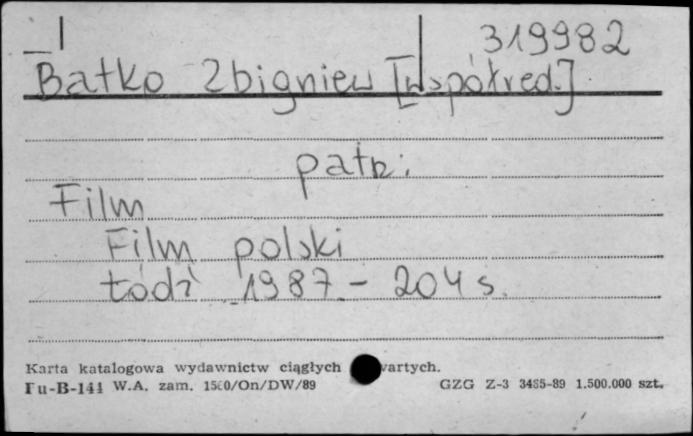 319982
Batko Zbigniew [współred.]
patrz:
Film
Film polski
Łódź 1987 - 204 s.
Karta katalogowa wydawnictw ciągłych
Pu-B-141 W.A. zam. /On/DW/89 GZG Z-3 3485-89 1.500.000 szt.